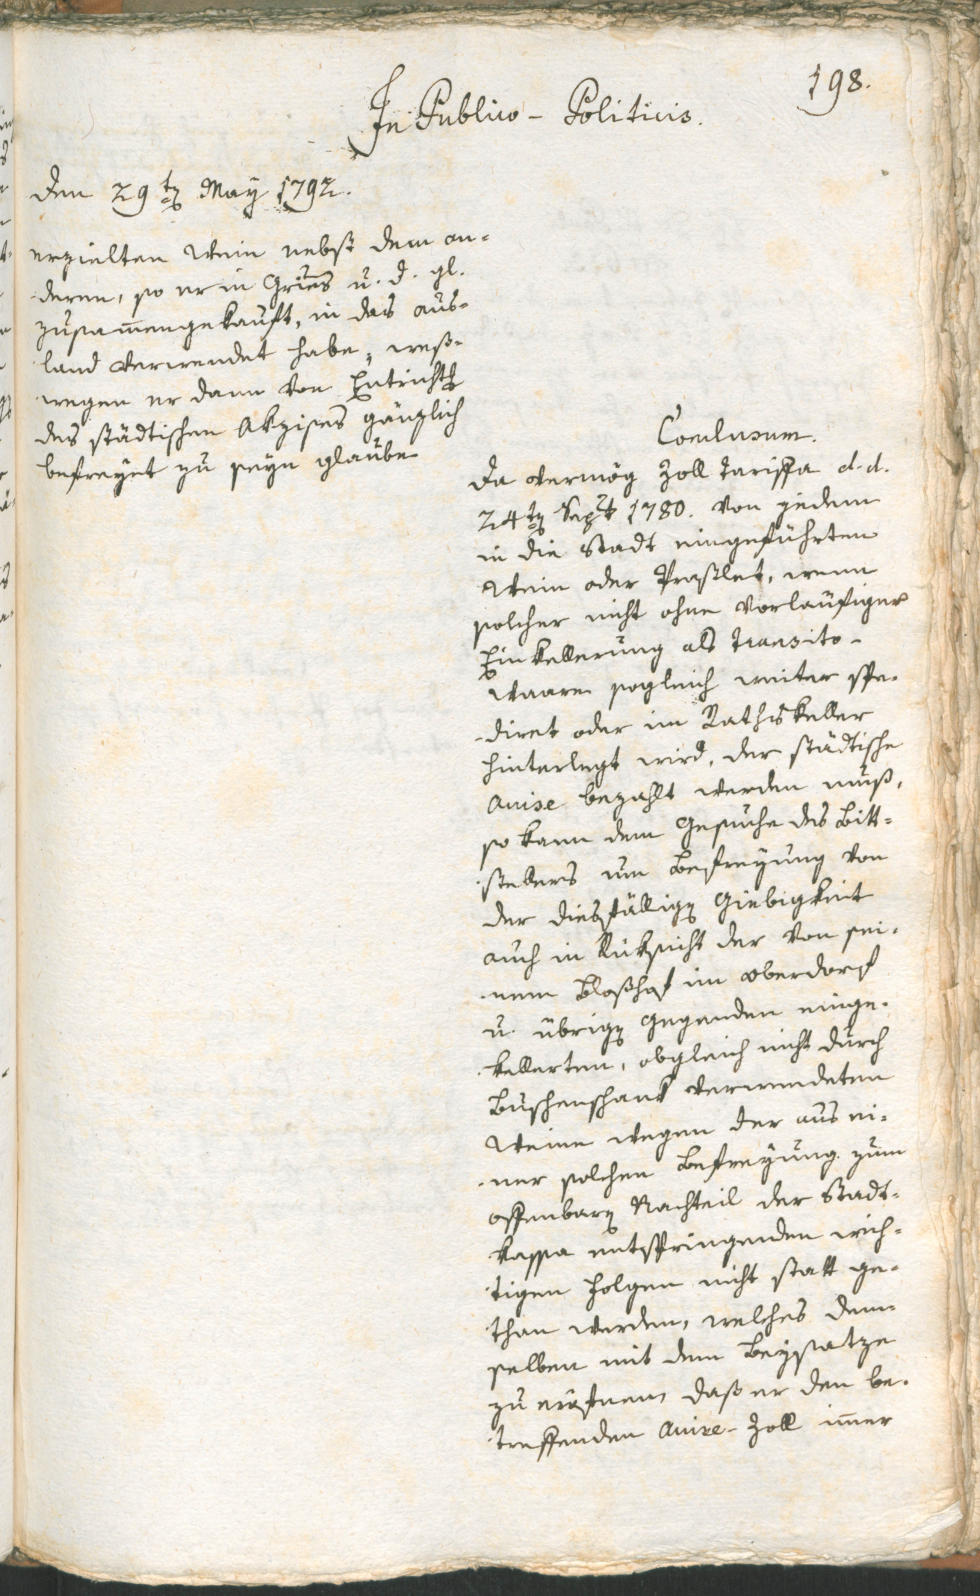 198.
In Publico-Politicis.
den 29ten May 1792.
erzielten Wein nebst dem an-
deren, so er in Gries u. d. gl.
zusam̄engekauft, in das aus-
land verwendet habe, weß-
wegen er dann von Entrichtg
des städtischen Akzises gänzlich
befreyet zu seyn glaube
Conclusum.
Da vermög Zoll Tariffa d. d.
24ten Sept 1780. von jedem
in die Stadt eingeführten
Wein oder Praßlet, wenn
solcher nicht ohne vorläufiger
Einkellerung als Transito-
waare sogleich weiter spe-
diret oder im Rathskeller
hinterlegt wird, der städtische
Accise bezahlt werden muß,
so kann dem Gesuche des Bitt-
stellers um Befreyung von
der diesfälligen Giebigkeit
auch in Rüksicht der von sei-
nem Bloßhof im Oberdorf
u. übrigen Gegenden einge-
kellerten, obgleich nicht durch
Buschenschank verwendeten
Weine wegen der aus ei-
ner solchen Befreyung zum
offenbaren Nachteil der Stadt-
kassa entspringenden wich-
tigen Folgen nicht statt ge-
than werden, welches dem-
selben mit dem Beysatze
zu eröfnen, daß er den be-
treffenden Accise-Zoll im̄er